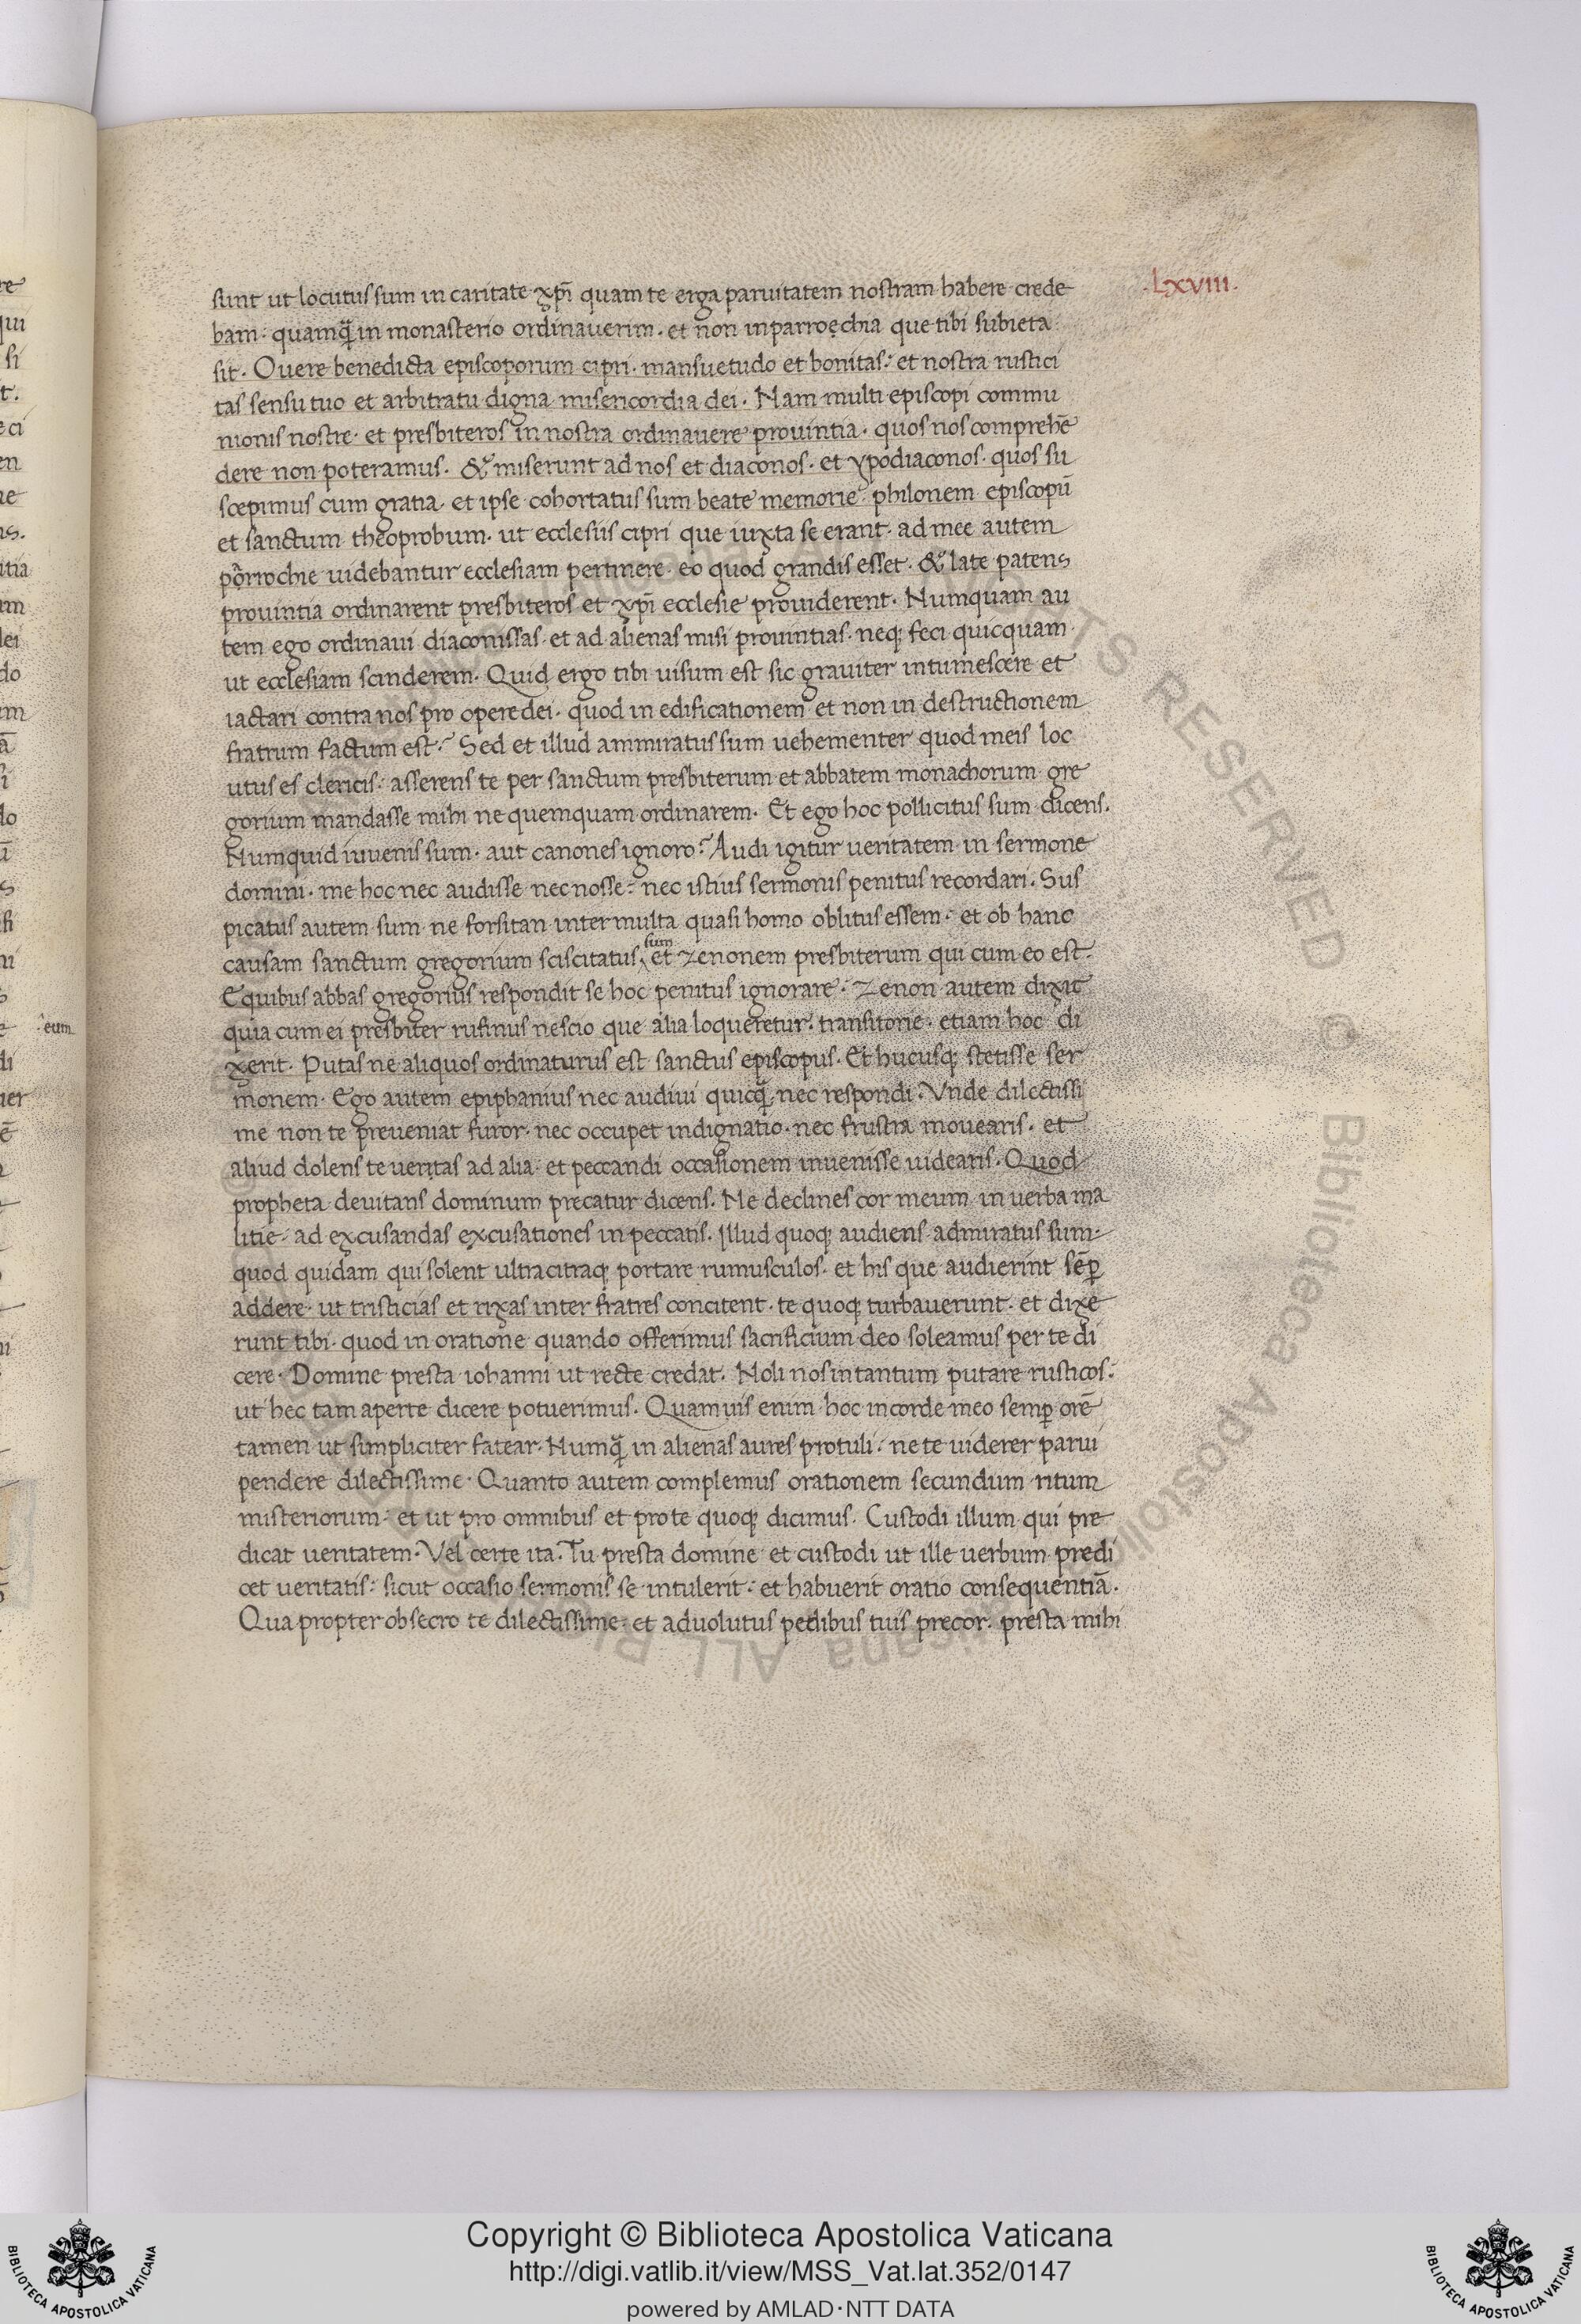 .LXVIII.
sunt ut locutus sum in caritate xp̄i quam te erga paruitatem nostram habere crede
bam· quamq̄ in monasterio ordinauerim· et non in parroechia que tibi subiecta
sit. O uere benedicta episcoporum cipri· mansuetudo et bonitas: et nostra rustici
tas sensu tuo et arbitratu digna misericordia dei. Nam multi episcopi commu
nionis nostre· et presbiteros in nostra ordinauere prouintia· quos nos comprehē
dere non poteramus. & miserunt ad nos et diaconos· et ypodiaconos· quos su
scepimus cum gratia· et ipse cohortatus sum beate memorie· philonem episcopū
et sanctum theoprobum· ut ecclesiis cipri que iuxta se erant· ad mee autem
porrochie uidebantur ecclesiam pertinere· eo quod grandis esset· & late patens
prouintia ordinarent presbiteros et xp̄i ecclesie prouiderent. Numquam au
tem ego ordinaui diaconissas· et ad alienas misi prouintias· neq; feci quicquam
ut ecclesiam scinderem. Quid ergo tibi uisum est sic grauiter intumescere et
iactari contra nos pro opere dei· quod in edificationem et non in destructionem
fratrum factum est? Sed et illud ammiratus sum uehementer quod meis loc
utus es clericis: asserens te per sanctum presbiterum et abbatem monachorum gre
gorium mandasse mihi ne quemquam ordinarem. Et ego hoc pollicitus sum dicens.
Numquid iuuenis sum· aut canones ignoro? Audi igitur ueritatem in sermone
domini· me hoc nec audisse nec nosse: nec istius sermonis penitus recordari. Sus
picatus autem sum ne forsitan inter multa quasi homo oblitus essem· et ob hanc
causam sanctum gregorium sciscitatus sum et zenonem presbiterum qui cum eo est.
E quibus abbas gregorius respondit se hoc penitus ignorare· Zenon autem dixit
quia cum ei presbiter rufinus nescio que alia loqueretur· transitorie· etiam hoc di
xerit. Putas ne aliquos ordinaturus est sanctus episcopus. Et hucusq; stetisse ser
monem. Ego autem epiphanius nec audiui quicq̄· nec respondi. Vnde dilectissi
me non te preueniat furor· nec occupet indignatio· nec frustra mouearis· et
aliud dolens te uertas ad alia· et peccandi occasionem inuenisse uidearis. Quod
propheta deuitans dominum precatur dicens. Ne declines cor meum in uerba ma
litie· ad excusandas excusationes in peccatis. Illud quoq; audiens admiratus sum·
quod quidam qui solent ultra citraq; portare rumusculos· et his que audierint sēp
addere· ut tristicias et rixas inter fratres concitent· te quoq; turbauerunt· et dixe
runt tibi· quod in oratione quando offerimus sacrificium deo soleamus per te di
cere. Domine presta iohanni ut recte credat. Noli nos in tantum putare rusticos:
ut hec tam aperte dicere potuerimus. Quamuis enim hoc in corde meo semp orē
tamen ut simpliciter fatear. Numq̄ in alienas aures protuli: ne te uiderer parui
pendere dilectissime. Quanto autem complemus orationem secundum ritum
misteriorum· et ut pro omnibus et pro te quoq; dicimus. Custodi illum qui pre
dicat ueritatem. Vel certe ita. Tu presta domine et custodi ut ille uerbum predi
cet ueritatis: sicut occasio sermonis se intulerit· et habuerit oratio consequentiā.
Qua propter obsecro te dilectissime· et aduolutus pedibus tuis precor· presta mihi
eum
Copyright © Biblioteca Apostolica Vaticana
http://digi.vatlib.it/view/MSS_Vat.lat.352/0147
powered by AMLAD·NTT DATA
BIBLIOTECA APOSTOLICA VATICANA
BIBLIOTECA APOSTOLICA VATICANA